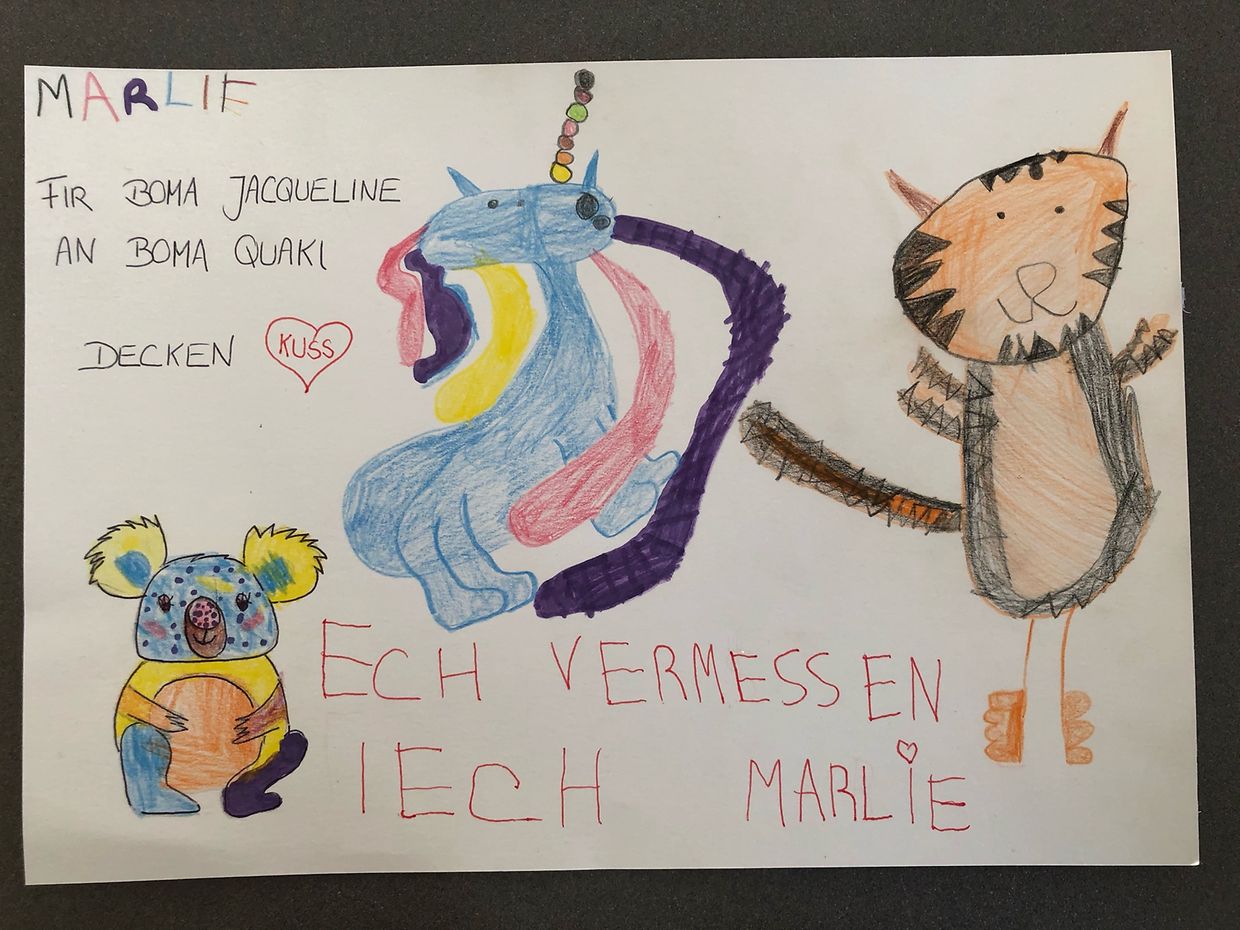 MARLIE
FIR BOMA JACQUELINE
AN BOMA QUAKI
DECKEN KUSS
ECH VERMESSEN
IECH MARLIE